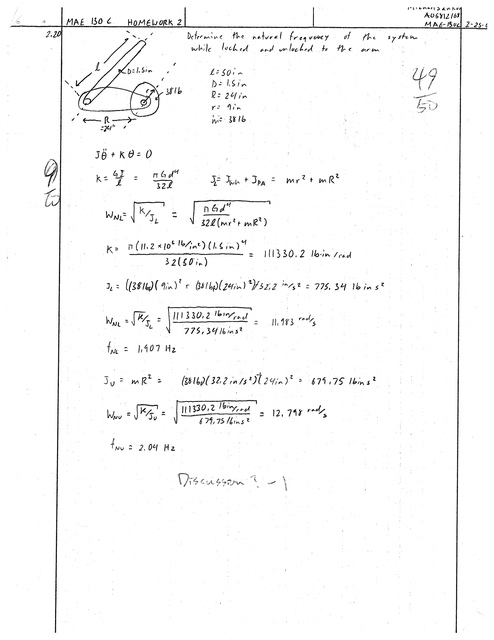 MAE 130 C HOMEWORK 2
MAE-130C 2-25-
2.20
Determine the natural frequency of the system
while locked and unlocked to the arm
l
D=1.5in
r
38 lb
R
=24"
l = 50 in
D = 1.5 in
R = 24 in
r = 9 in
w = 38 lb
49
50
9
10
Jθ̈ + Kθ = 0
K = GJ/l = πGd⁴/32l J_L = J_WH + J_PA = mr² + mR²
W_NL = √(K/J_L) = √(πGd⁴/32l(mr² + mR²))
K = π(11.2 × 10⁶ lb/in²)(1.5 in)⁴/32(50 in) = 111330.2 lb·in/rad
J_L = ((38 lb)(9in)² + (38 lb)(24in)²)/32.2 in/s² = 775.34 lb in s²
W_NL = √(K/J_L) = √(111330.2 lb in/rad/775.34 lb in s²) = 11.983 rad/s
f_NL = 1.907 Hz
J_U = mR² = (38 lb)(32.2 in/s²)(24in)² = 679.75 lb in s²
W_NU = √(K/J_U) = √(111330.2 lb in/rad/679.75 lb in s²) = 12.798 rad/s
f_NU = 2.04 Hz
Discussion? -1